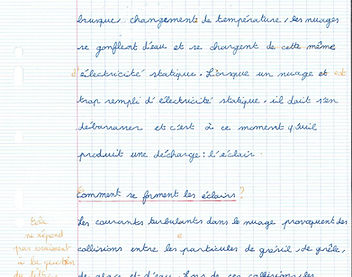 brusques changements de température, les nuages
se gonflent d'eau et se chargent de cette même
d'électricité statique. Lorsque un nuage et est
trop rempli d'électricité statique, il doit s'en
débarrasser et c'est à ce moment qu'il
produit une décharge : l'éclair.
Comment se forment les éclairs ?
Les courants turbulants dans le nuage provoquent des
collisions entre les particules de grésil, de grêle,
de glace et d'eau. Lors de ces collisions, les
Cela
ne répond
pas vraiment
à la question